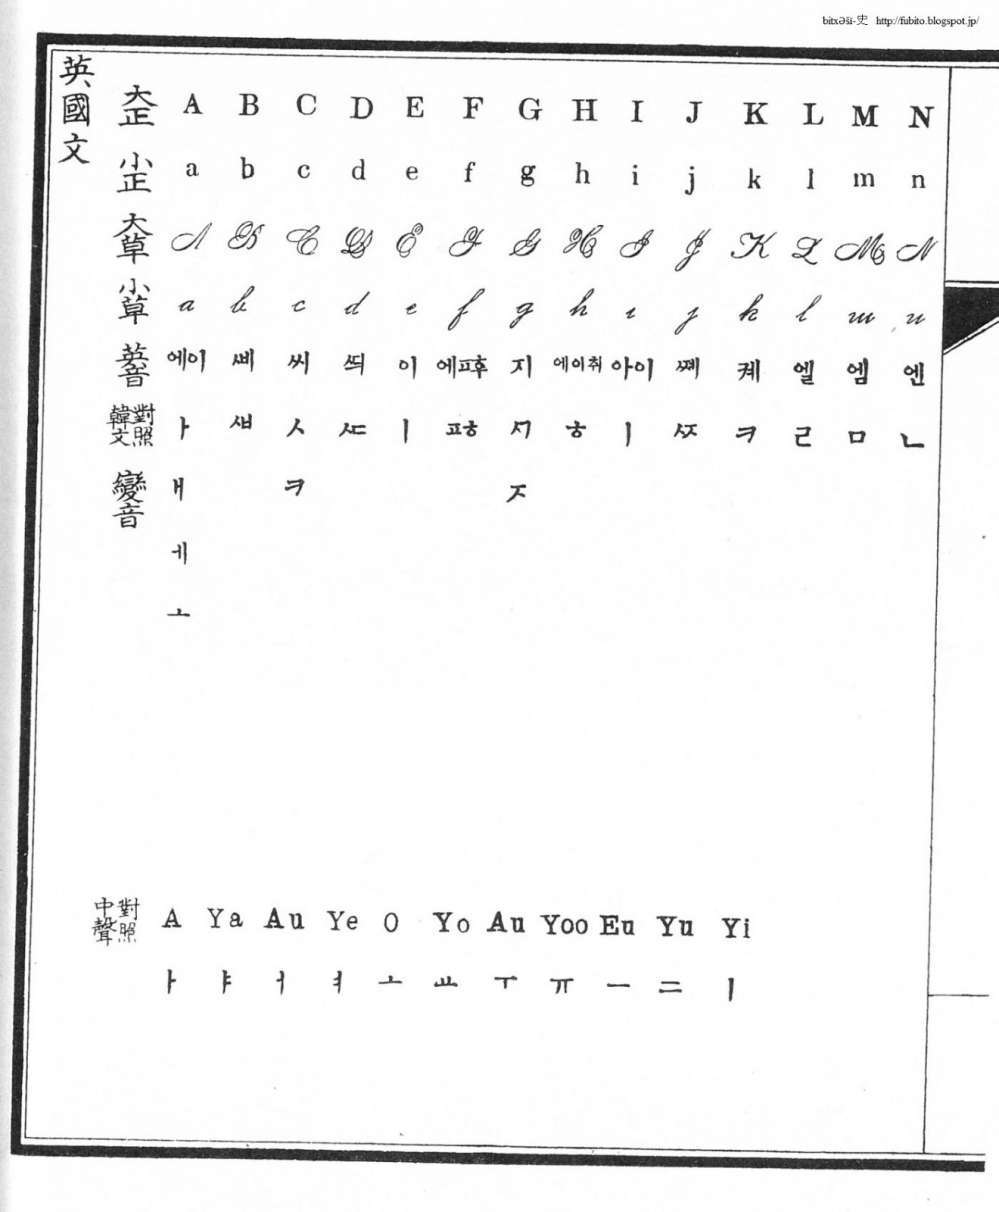 bitxəši-史 http://fubito.blogspot.jp/
英國文
大正 A B C D E F G H I J K L M N
小正 a b c d e f g h i j k l m n
大草 A B C D E F G H I J K L M N
小草 a b c d e f g h i j k l m n
英音 에이 ᄲᅵ 씨 ᄯᅴ 이 에ꥺᅮ 지 에이취 아이 ᄶᅦ 케 엘 엠 엔
韓文對照 ㅏ ㅽ ㅅ ㅼ ㅣ ꥺ ㅺ ㅎ ㅣ ㅾ ㅋ ㄹ ㅁ ㄴ
變音 ㅐ ㅋ ㅈ
ㅔ
ㅗ
中聲對照 A Ya Au Ye O Yo Au Yoo Eu Yu Yi
ㅏ ㅑ ㅓ ㅕ ㅗ ㅛ ㅜ ㅠ ㅡ ᆖ ㅣ